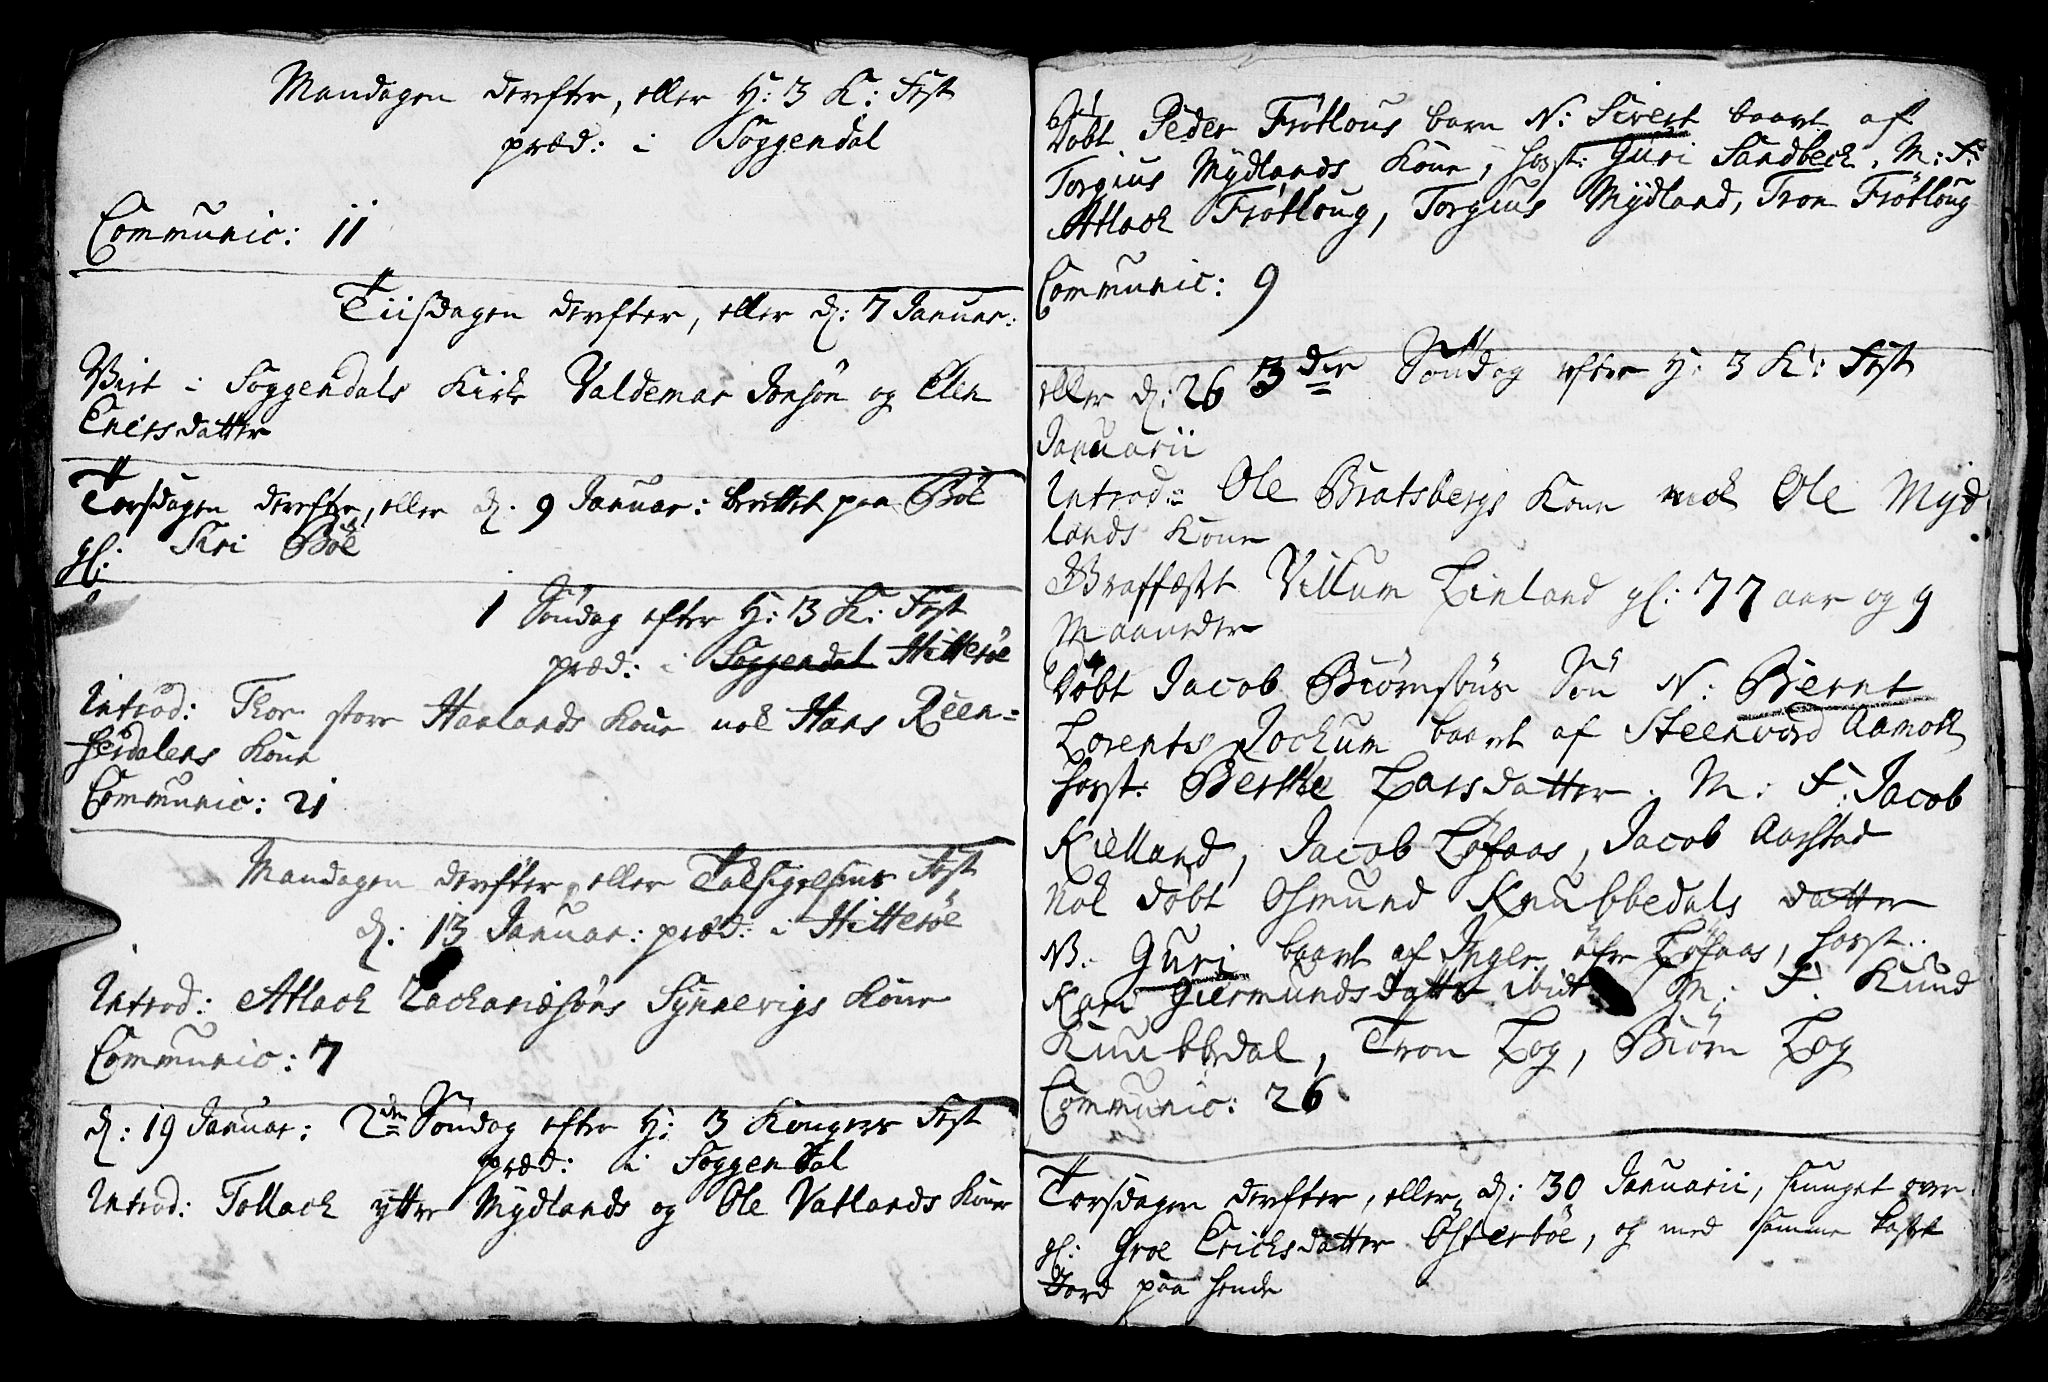 Mandagen derefter, eller H: 3 K: Fest
præd: i Soggendal
Communic: 11
Tiisdagen derefter, eller d: 7 Januar:
Viet i Soggendals Kirke Valdemar Jonsøn og Elen
Ericsdatter
Torsdagen derefter, eller d. 9 Januar: berettet paa Böe
gl: Siri Böe
1 Søndag efter H: 3 K: Fest
præd: i Soggendal Hitterøe
Introd: Thor store Haalands Kone nok Hans Reen=
herdalens Kone
Communic: 21
Mandagen derefter, eller Taksigelsens Fest
d: 13 Januar: præd: i Hitterøe
Introd: Atlach Zachariæsøns Synnevigs Kone
Communic: 7
d: 19 Januar: 2den Søndag efter H: 3 Kongers Fest
præd: i Soggendal
Introd: Tollach yttre Mydlands og Ole Vatlands Kone
Döbt Peder Frötlous barn N: Sivert baaret af
Torgius Mydlands Kone, host: Guri Sandbeck. M: F:
Atlach Frötloug, Torgius Mydland, Tron Frötloug
Communic: 9
3der Søndag efter H: 3 K: Fest
eller d: 26
Januarii
Introd: Ole Bratsbergs Kone nok Ole Myd
lands Kone
Graffæst Villum Linland gl: 77 aar og 9
Maaneder
Döbt Jacob Biørnsöns Søn N: Bernt
Lorents Jochum baaret af Steenvord Aamott
host: Berthe Larsdatter. M: F: Jacob
Kielland, Jacob Løfaas, Jacob Aarstad
Nok döbt Osmund Knubbedals datter
N. Guri baaret af Inger Løfaas, host:
Kari Giermundsdatter ibid M: F. Knud
Knubbedal, Tron Log, Biørn Log
Communic: 26
Torsdagen derefter, eller d: 30 Januarii, siunget over
gl: Groe Erichsdatter Østerböe, og med samme kast
Jord paa hende